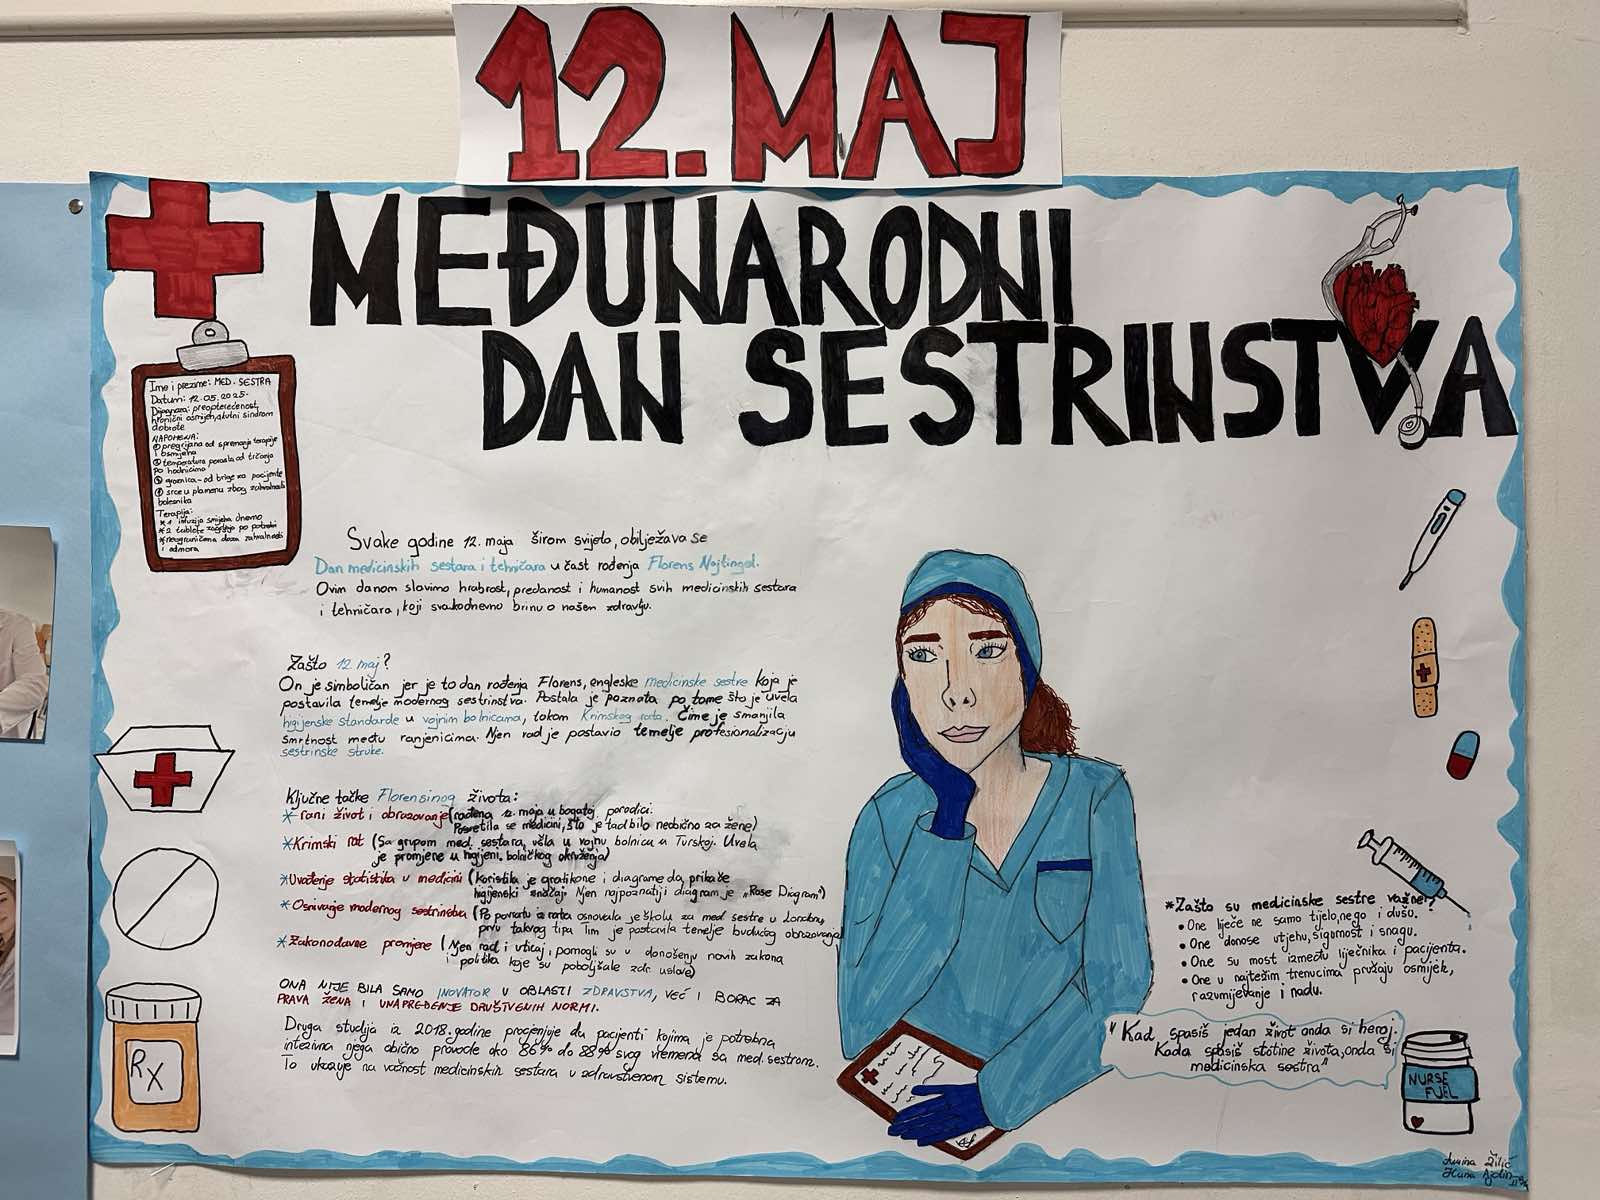 12. MAJ
MEĐUNARODNI
DAN SESTRINSTVA
Ime i prezime: MED. SESTRA
Datum: 12.05.2025.
Dijagnoza: preopterećenost,
hronični osmijeh, akutni sindrom
dobrote
NAPOMENA:
① pregrijana od spremanja terapije
i osmijeha
② temperatura porasla od trčanja
po hodnicima
③ groznica - od brige za pacijente
④ srce u plamenu zbog zahvalnosti
bolesnika
Terapija:
* 1 infuzija smijeha dnevno
* 2 tablete zagrljaja po potrebi
* neograničena doza zahvalnosti
i odmora
Svake godine 12. maja širom svijeta, obilježava se
Dan medicinskih sestara i tehničara u čast rođenja Florens Najtingel.
Ovim danom slavimo hrabrost, predanost i humanost svih medicinskih sestara
i tehničara, koji svakodnevno brinu o našem zdravlju.
Zašto 12 maj?
On je simboličan jer je to dan rođenja Florens, engleske medicinske sestre koja je
postavila temelje modernog sestrinstva. Postala je poznata po tome što je uvela
higijenske standarde u vojnim bolnicama, tokom Krimskog rata. Čime je smanjila
smrtnost među ranjenicima. Njen rad je postavio temelje profesionalizaciju
sestrinske struke.
Ključne tačke Florensinog života:
* rani život i obrazovanje (rođena 12. maja u bogatoj porodici.
Posvetila se medicini, što je tad bilo neobično za žene)
* Krimski rat (Sa grupom med. sestara, ušla u vojnu bolnicu u Turskoj. Uvela
je promjene u higijeni bolničkog okruženja)
* Uvođenje statistike u medicini (koristila je grafikone i diagrame da prikaže
higijenski značaj. Njen najpoznatiji diagram je „Rose Diagram")
* Osnivanje modernog sestrinstva (Po povratu iz rata osnovala je školu za med sestre u Londonu,
prvu takvog tipa. Tim je postavila temelje budućeg obrazovanja)
* Zakonodavne promjene (Njen rad i uticaj, pomogli su u donošenju novih zakona
i politika koje su poboljšale zdr. uslove)
ONA NIJE BILA SAMO INOVATOR U OBLASTI ZDRAVSTVA, VEĆ I BORAC ZA
PRAVA ŽENA I UNAPREĐENJE DRUŠTVENIH NORMI.
Druga studija iz 2018. godine procjenjuje da pacijenti kojima je potrebna
intezivna njega obično provode oko 86% do 88% svog vremena sa med. sestrom.
To ukazuje na važnost medicinskih sestara u zdravstvenom sistemu.
* Zašto su medicinske sestre važne?
• One liječe ne samo tijelo, nego i dušu.
• One donose utjehu, sigurnost i snagu.
• One su most između liječnika i pacijenta.
• One u najtežim trenucima pružaju osmijeh,
razumijevanje i nadu.
"Kad spasiš jedan život onda si heroj.
Kada spasiš stotine života, onda si
medicinska sestra"
RX
NURSE
FUEL
Amina Žilić
Hana Ajdin